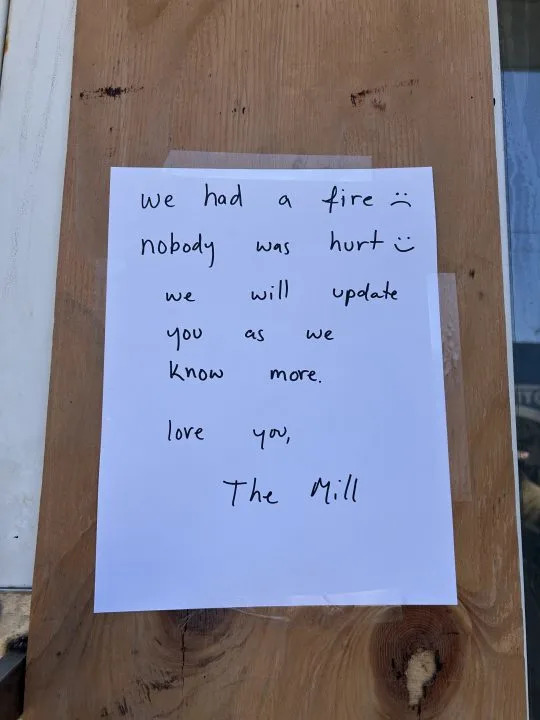 we had a fire :(
nobody was hurt :)
we will update
you as we
know more.
love you,
The Mill